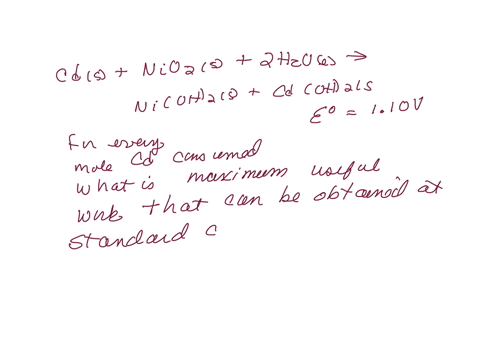 Cd(s) + NiO2(s) + 2H2O(l) →
Ni(OH)2(s) + Cd(OH)2(s
ε° = 1.10V
For every
mole Cd consumed
what is maximum useful
work that can be obtained at
standard c